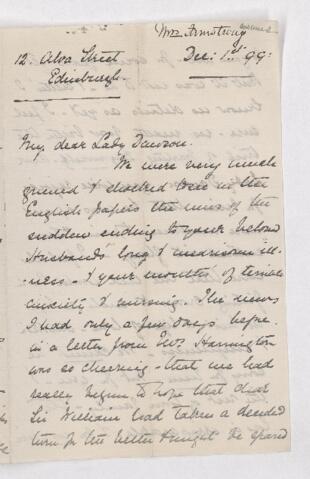 Mrs Armstrong
12. Alva Street
Edinburgh.
Dec: 1st 99:
My dear Lady Dawson.
We were very much
grieved & shocked to see in the
English papers the news of the
sudden ending to your beloved
Husband's long & wearisome ill-
ness - & your months of terrible
anxiety & nursing. The news
I had only a few days before
in a letter from Mrs Harrington
was so cheering - that we had
really begun to hope that dear
Sir William had taken a decided
turn for the better & might be spared